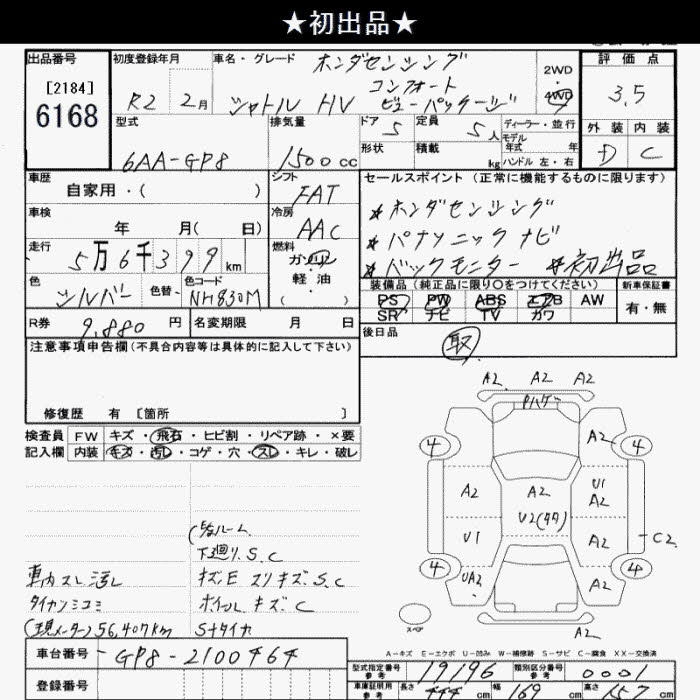 ★初出品★
出品番号 初度登録年月 車名・グレード ホンダセンシング 評価点
[2184] コンフォート 2WD
6168 R2 2月 シャトル HV ビューパッケージ 4WD 3.5
型式 排気量 ドア 5 定員 5人 ディーラー・並行 外装 内装
モデル年式 年
6AA-GP8 1500cc 形状 積載 kg ハンドル 左・右 D C
車歴 シフト セールスポイント (正常に機能するものに限ります)
自家用・( ) FAT ★ホンダセンシング
車検 冷房
年 月( 日) AAC ★パナソニックナビ
走行 燃料
5万6千399km ガソリン ★バックモニター ★初出品
色 色替 色コード 軽油 装備品 (純正品に限り○をつけてください) 新車保証書
シルバー NH830M ( ) PS PW ABS エアB AW 有・無
R券 9,880円 名変期限 月 日 SR ナビ TV カワ
後日品
注意事項申告欄 (不具合内容等は具体的に記入して下さい) 取
修復歴 有 [箇所 ]
検査員 FW キズ・飛石・ヒビ割・リペア跡・×要
記入欄 内装 キズ・汚レ・コゲ・穴・スレ・キレ・破レ
A2 A2 A2
Pハゲ
4 A2 4
A2 A2 U1
A2
U2(タタ)
U1 A2 C2
4 UA2 A2 4
A2
スペア
下廻り.S.C
車内スレ汚レ キズE スリキズ.S.C
ホイールキズC
(現メーター)56,407km Sタイヤ
A-キズ E-エクボ U-凹み W-補修跡 S-サビ C-腐食 XX-交換済
車台番号 GP8-2100464
型式指定番号 参考 19196 類別区分番号 参考 0001
登録番号 車庫証明用 参考 長さ 444cm 幅 169cm 高さ 157cm